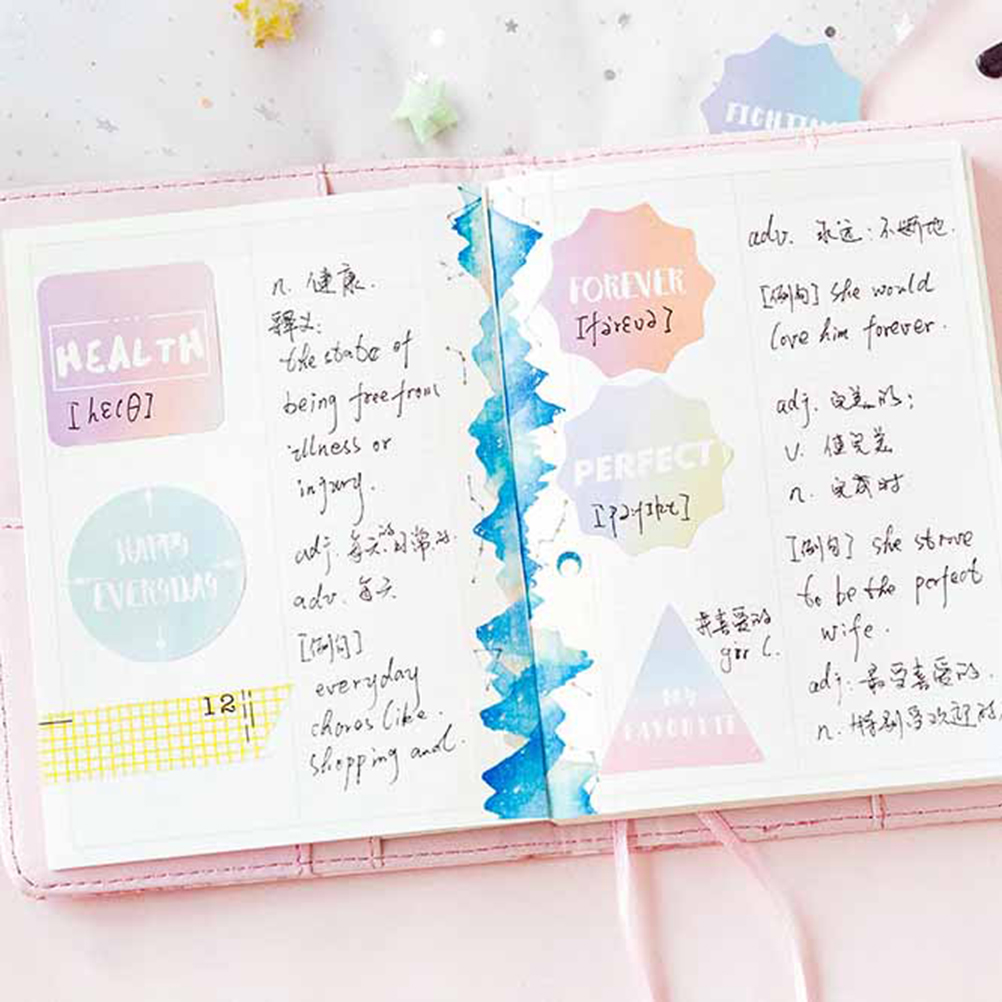 FIGHTING
HEALTH
[hεlθ]
n. 健康.
释义:
the state of
being free from
illness or
injury.
HAPPY
EVERYDAY
adj. 每天的日常的.
adv. 每天
[例句]
everyday
chores like.
shopping and.
12
FOREVER
[fərεvə]
adv. 永远:不断地.
[例句] she would
love him forever.
PERFECT
adj. 完美的;
v. 使完美
n. 完成时
[例句] she strove
to be the perfect
wife.
MY
FAVORITE
喜爱的
adj. 最受喜爱的.
n. 特别受欢迎的